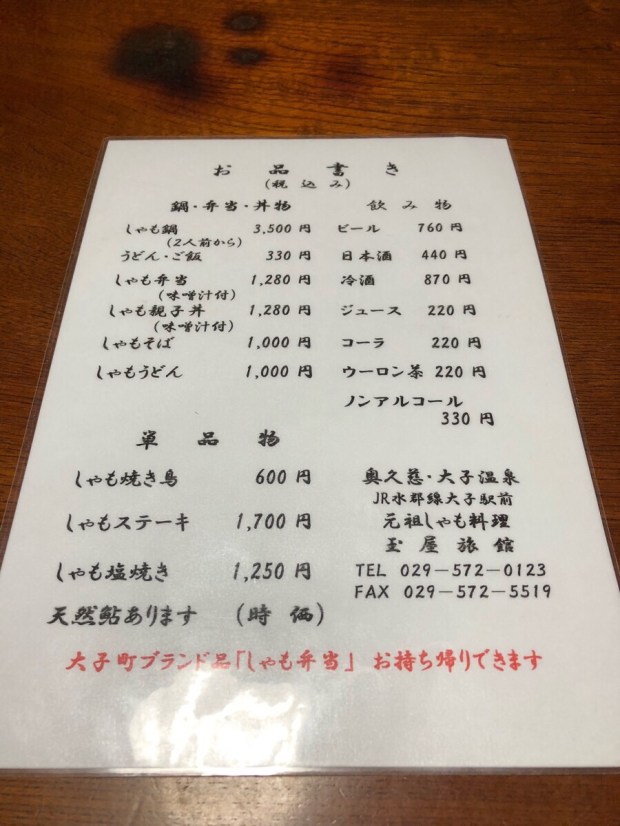 お品書き
(税込み)
鍋・弁当・丼物
しゃも鍋 3,500 円
(2人前から)
うどん・ご飯 330 円
しゃも弁当 1,280 円
(味噌汁付)
しゃも親子丼 1,280 円
(味噌汁付)
しゃもそば 1,000 円
しゃもうどん 1,000 円
飲み物
ビール 760 円
日本酒 440 円
冷酒 870 円
ジュース 220 円
コーラ 220 円
ウーロン茶 220 円
ノンアルコール
330 円
単品物
しゃも焼き鳥 600 円
しゃもステーキ 1,700 円
しゃも塩焼き 1,250 円
天然鮎あります (時価)
奥久慈・大子温泉
JR水郡線大子駅前
元祖しゃも料理
玉屋旅館
TEL 029-572-0123
FAX 029-572-5519
大子町ブランド品「しゃも弁当」 お持ち帰りできます